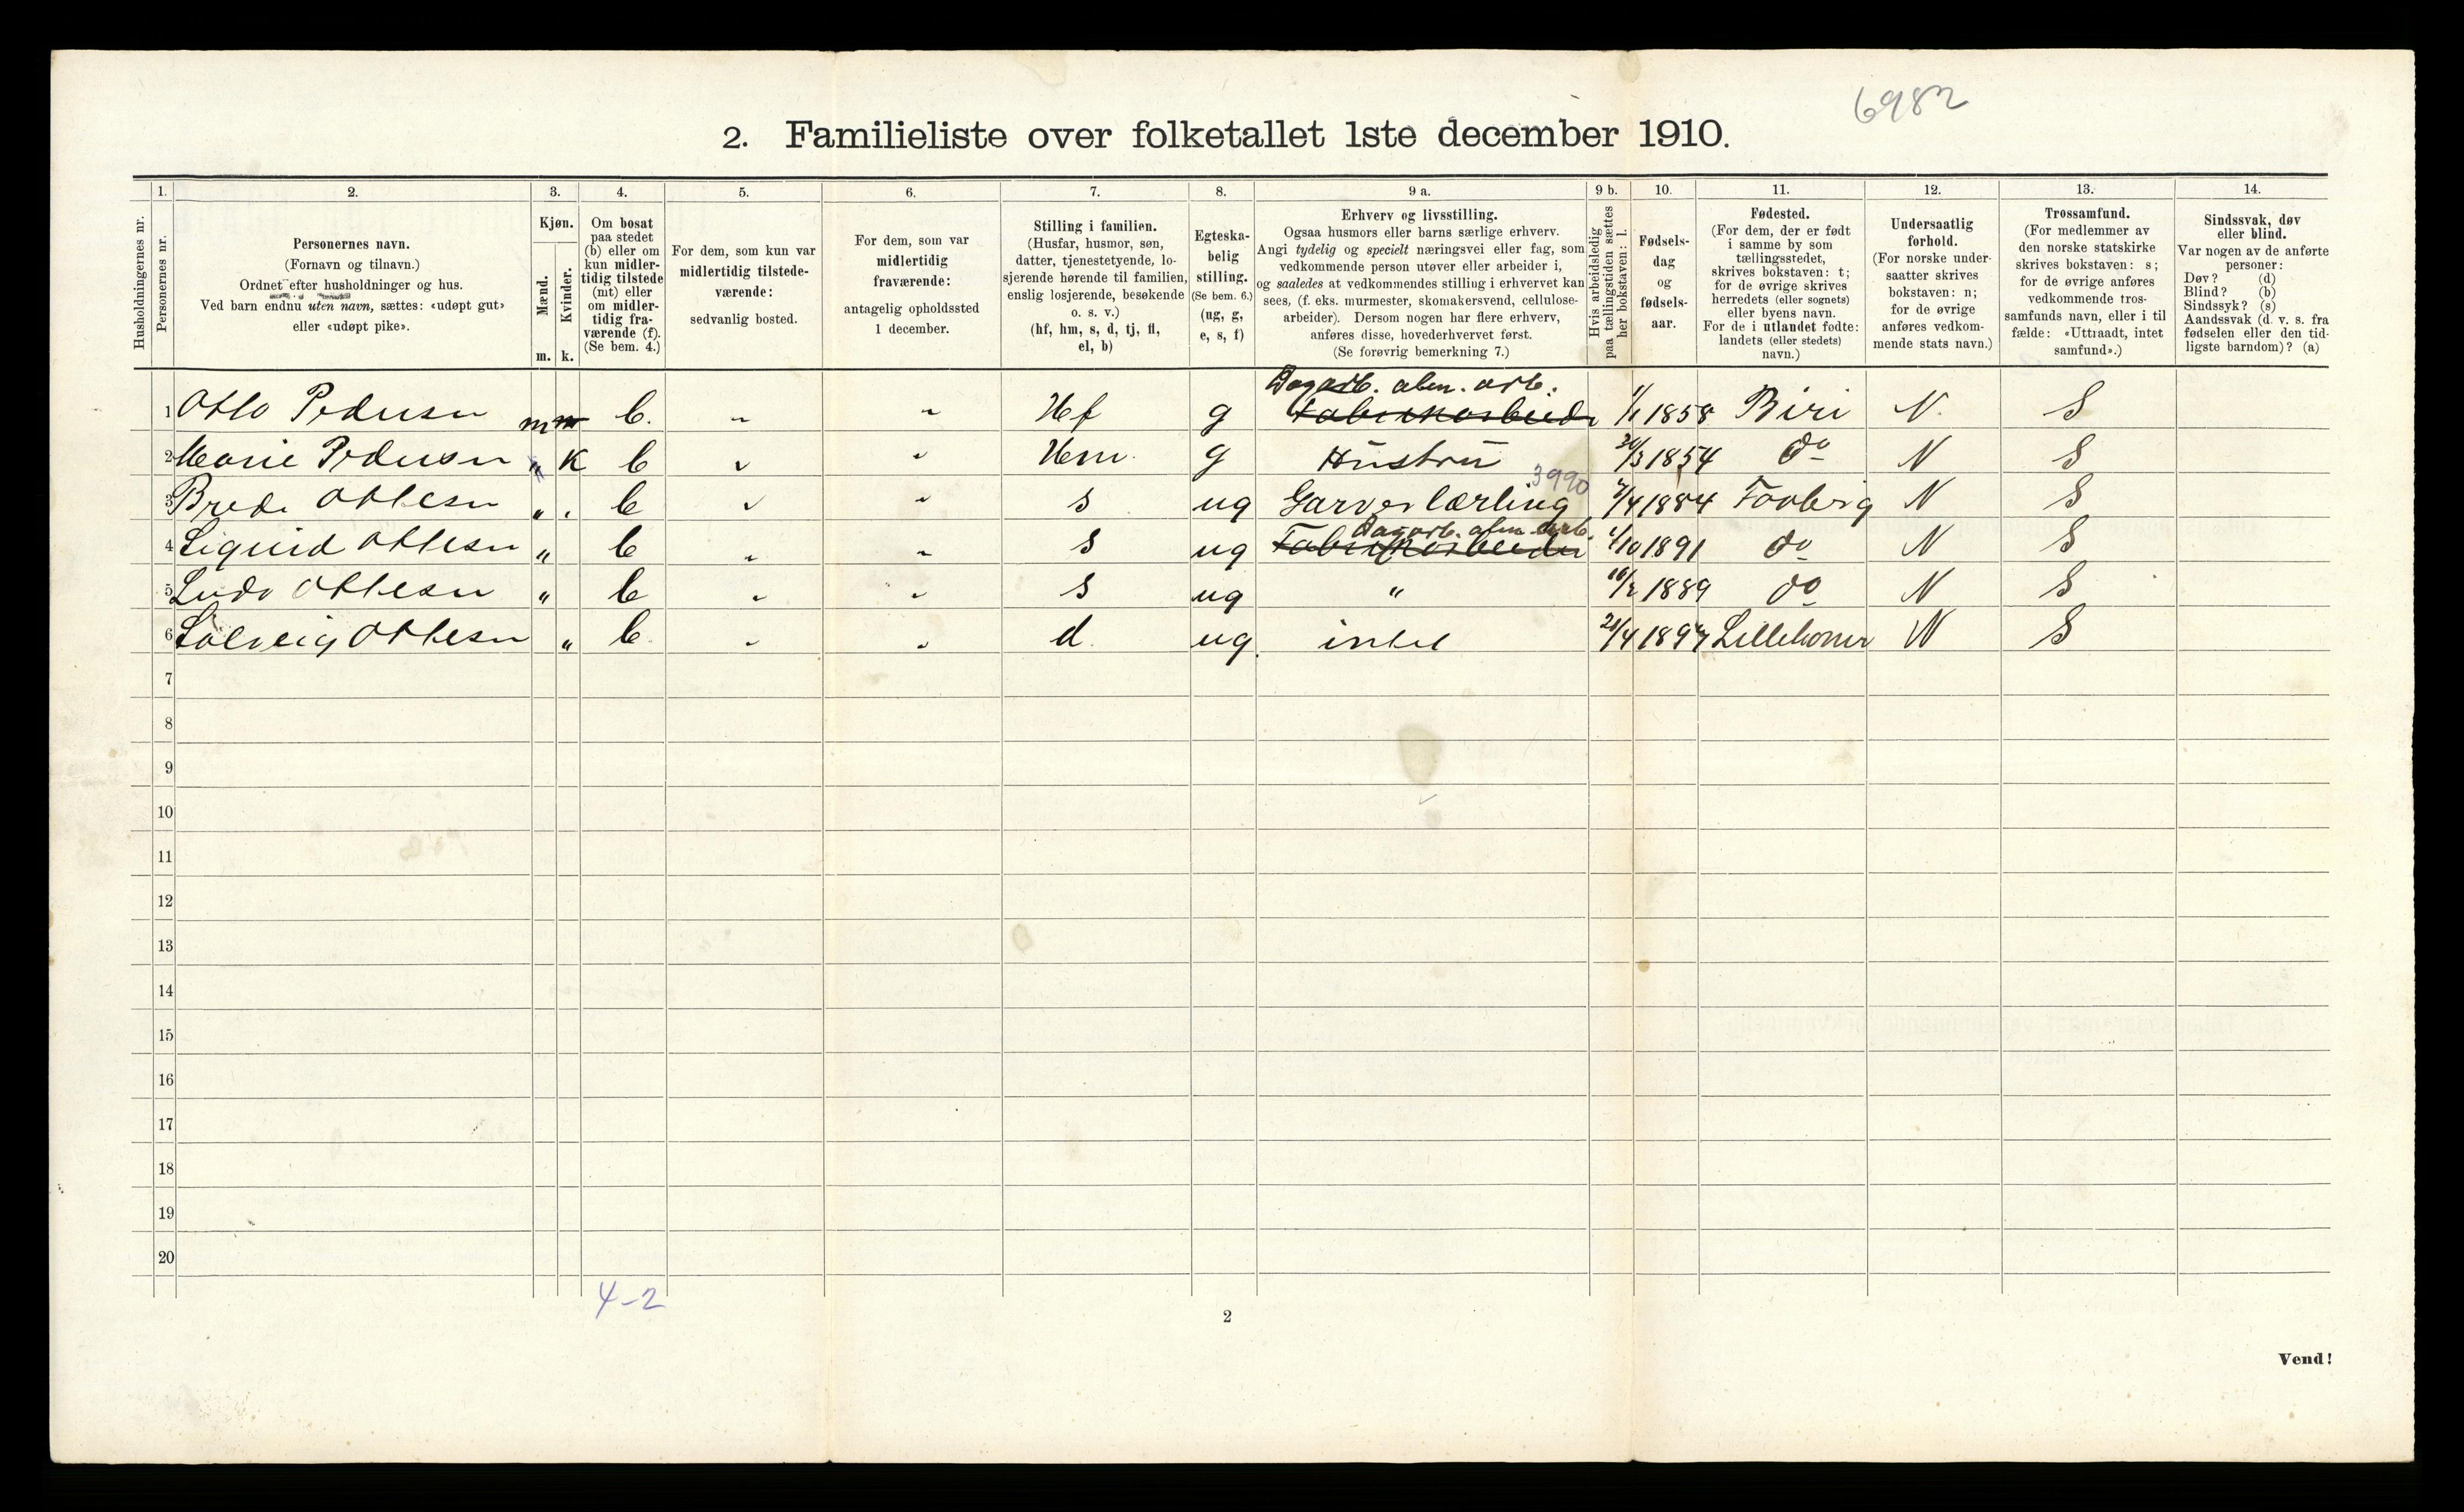 6982
2. Familieliste over folketallet 1ste december 1910.
1. 2. 3. 4. 5. 6. 7. 8. 9 a. 9 b. 10. 11. 12. 13. 14.
Husholdningernes nr.
Personernes nr.
Personernes navn.
(Fornavn og tilnavn.)
Ordnet efter husholdninger og hus.
Ved barn endnu uten navn, sættes: «udøpt gut»
eller «udøpt pike».
Kjøn.
Mænd.
Kvinder.
m. k.
Om bosat
paa stedet
(b) eller om
kun midler-
tidig tilstede
(mt) eller
om midler-
tidig fra-
værende (f).
(Se bem. 4.)
For dem, som kun var
midlertidig tilstede-
værende:
sedvanlig bosted.
For dem, som var
midlertidig
fraværende:
antagelig opholdssted
1 december.
Stilling i familien.
(Husfar, husmor, søn,
datter, tjenestetyende, lo-
sjerende hørende til familien,
enslig losjerende, besøkende
o. s. v.)
(hf, hm, s, d, tj, fl,
el, b)
Egteska-
belig
stilling.
(Se bem. 6.)
(ug, g,
e, s, f)
Erhverv og livsstilling.
Ogsaa husmors eller barns særlige erhverv.
Angi tydelig og specielt næringsvei eller fag, som
vedkommende person utøver eller arbeider i,
og saaledes at vedkommendes stilling i erhvervet kan
sees, (f. eks. murmester, skomakersvend, cellulose-
arbeider). Dersom nogen har flere erhverv,
anføres disse, hovederhvervet først.
(Se forøvrig bemerkning 7.)
Hvis arbeidsledig
paa tællingstiden sættes
her bokstaven: l.
Fødsels-
dag
og
fødsels-
aar.
Fødested.
(For dem, der er født
i samme by som
tællingsstedet,
skrives bokstaven: t;
for de øvrige skrives
herredets (eller sognets)
eller byens navn.
For de i utlandet fødte:
landets (eller stedets)
navn.)
Undersaatlig
forhold.
(For norske under-
saatter skrives
bokstaven: n;
for de øvrige
anføres vedkom-
mende stats navn.)
Trossamfund.
(For medlemmer av
den norske statskirke
skrives bokstaven: s;
for de øvrige anføres
vedkommende tros-
samfunds navn, eller i til
fælde: «Uttraadt, intet
samfund».)
Sindssvak, døv
eller blind.
Var nogen av de anførte
personer:
Døv? (d)
Blind? (b)
Sindssyk? (s)
Aandssvak (d. v. s. fra
fødselen eller den tid-
ligste barndom)? (a)
Dagarb. alm. arb.
1 Otto Pedersen m m b. " " Hf g Fabrikarbeider 1/1 1858 Biri N. S
2 Marie Pedersen " K b " " Hm. g Hustru 1854 do N S
3990
3 Brede Ottesen " " b " " s ug Garverlærling 1884 Faaberg N S
Dagarb. alm. arb.
4 Sigurd Ottesen " b " " s ug Fabrikarbeider 1/10 1891 do N S
5 Ludv Ottesen " b " " s ug " 1889 do N S
6 Solveig Ottesen " b. " " d. ug. intet 1897 Lillehamer N S
7
8
9
10
11
12
13
14
15
16
17
18
19
20
4-2
2
Vend!